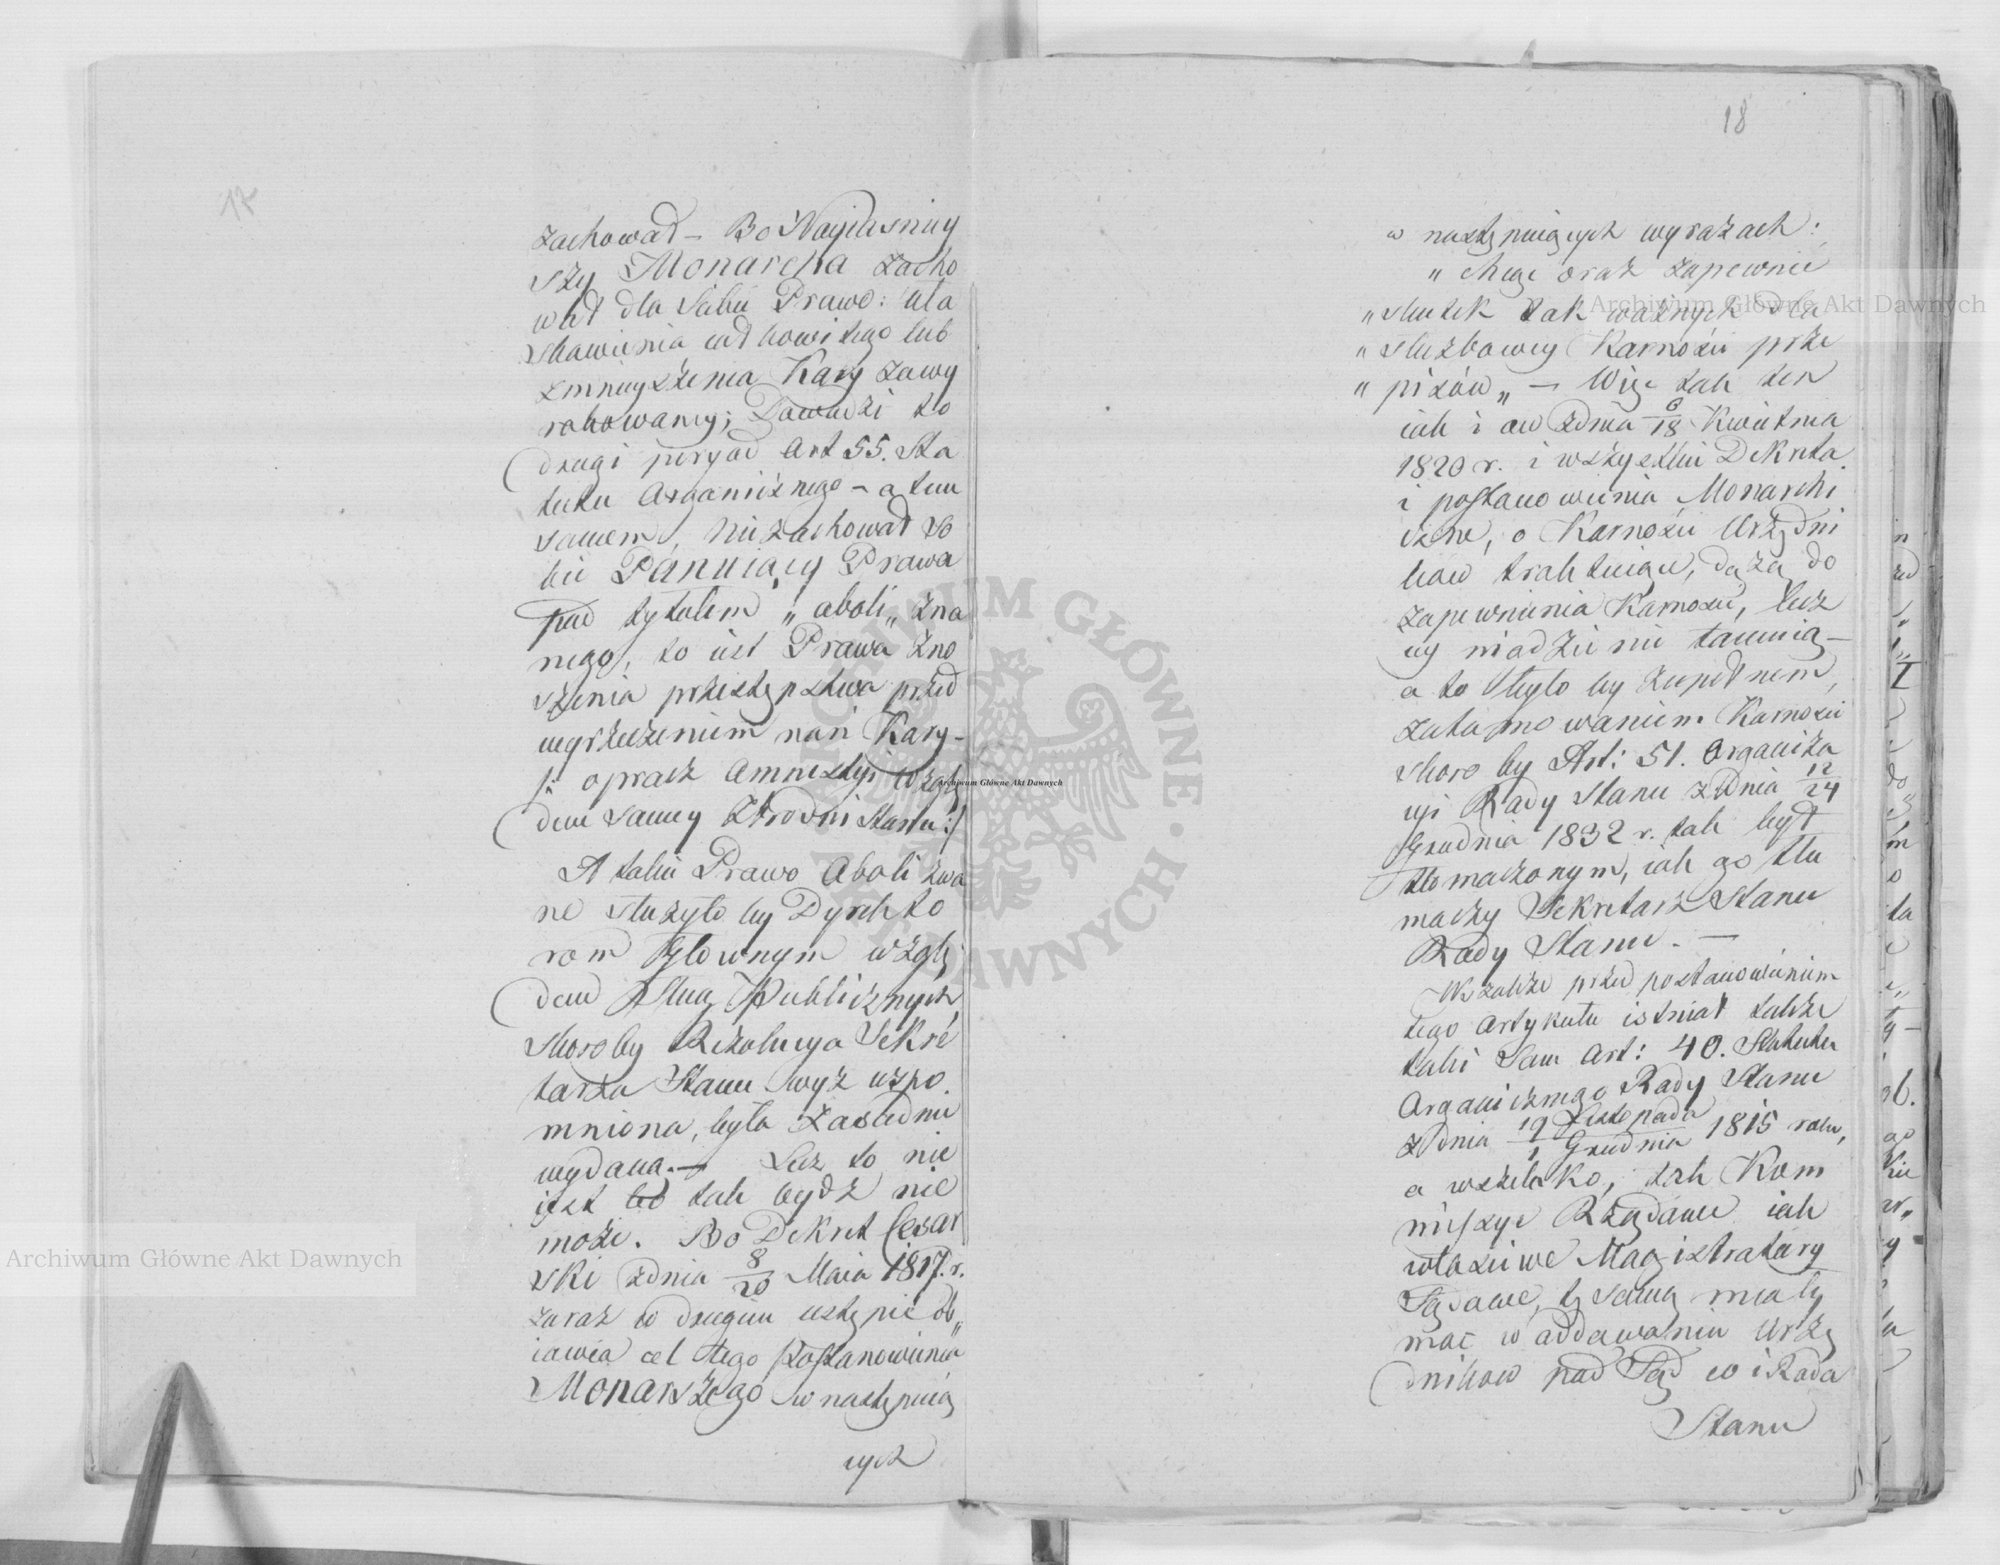 17
zachował – Bo Nayiasniey
szy Monarcha zacho
wał dla Siebie Prawo: uła
skawienia całkowitego lub
zmnieyszenia Kary zawy
rokowaney; Dowodzi to
drugi peryod Art 55. Sta
tutu Organicznego – a tem
samem, niezachował so
bie Panuiący Prawa
pod tytułem „aboli„ zna
nego, to iest Prawa zno
szenia przestępstwa przed
wyrzeczeniem nań Kary –
/: oprocz Amnestyi wzglę
dem samey Zbrodni Stanu:/
A takie Prawo Aboli zwa
ne służyło by Dyrekto
rom Głownym wzglę
dem Sług Publicznych
skoro by Rezolucya Sekre
tarza Stanu wyż wspo
mniona, była zasadnie
wydana. – Lecz to nie
iest tak bydź nie
może. Bo Dekret Cesar
ski zdnia 8/20 Maia 1817. r.
zaraz w drugim ustępie ob„
iawia cel tego Postanowienia
Monarszego w następuią
cych
18
w następuiących wyrazach:
„ chcąc oraz zapewnić
„ skutek tak ważnych dla
„ służbowey Karności prze
„ pisów„ – Więc tak ten
iak i ow zdnia 6/18 Kwietnia
1820 r. i wszystkie Dekreta
i postanowienia Monarchi
czne, o Karności Urzędni
kow traktuiące, dążą do
zapewnienia Karności, lecz
iey nigdzie nie tamuią –
a to było by zupełnem
zatamowaniem Karności
skoro by Art: 51. Organiza
cyi Rady Stanu zdnia 12/24
Grudnia 1832 r. tak był
tłomaczonym, iak go tłu
maczy Sekretarz Stanu
Rady Stanu. –
Wszakże przed postanowieniem
tego Artykułu istniał także
taki Sam Art: 40. Statutu
Organicznego Rady Stanu
zdnia 19 Listopada/1 Grudnia 1815 roku,
a wszelako, tak Kom
missye Rządowe iak
właściwe Magistratury
Sądowe, tę samą miały
moc w oddawaniu Urzę
dnikow pod Sąd co i Rada
Stanu
Archiwum Główne Akt Dawnych
Archiwum Główne Akt Dawnych
Archiwum Główne Akt Dawnych
ARCHIWUM GŁÓWNE AKT DAWNYCH